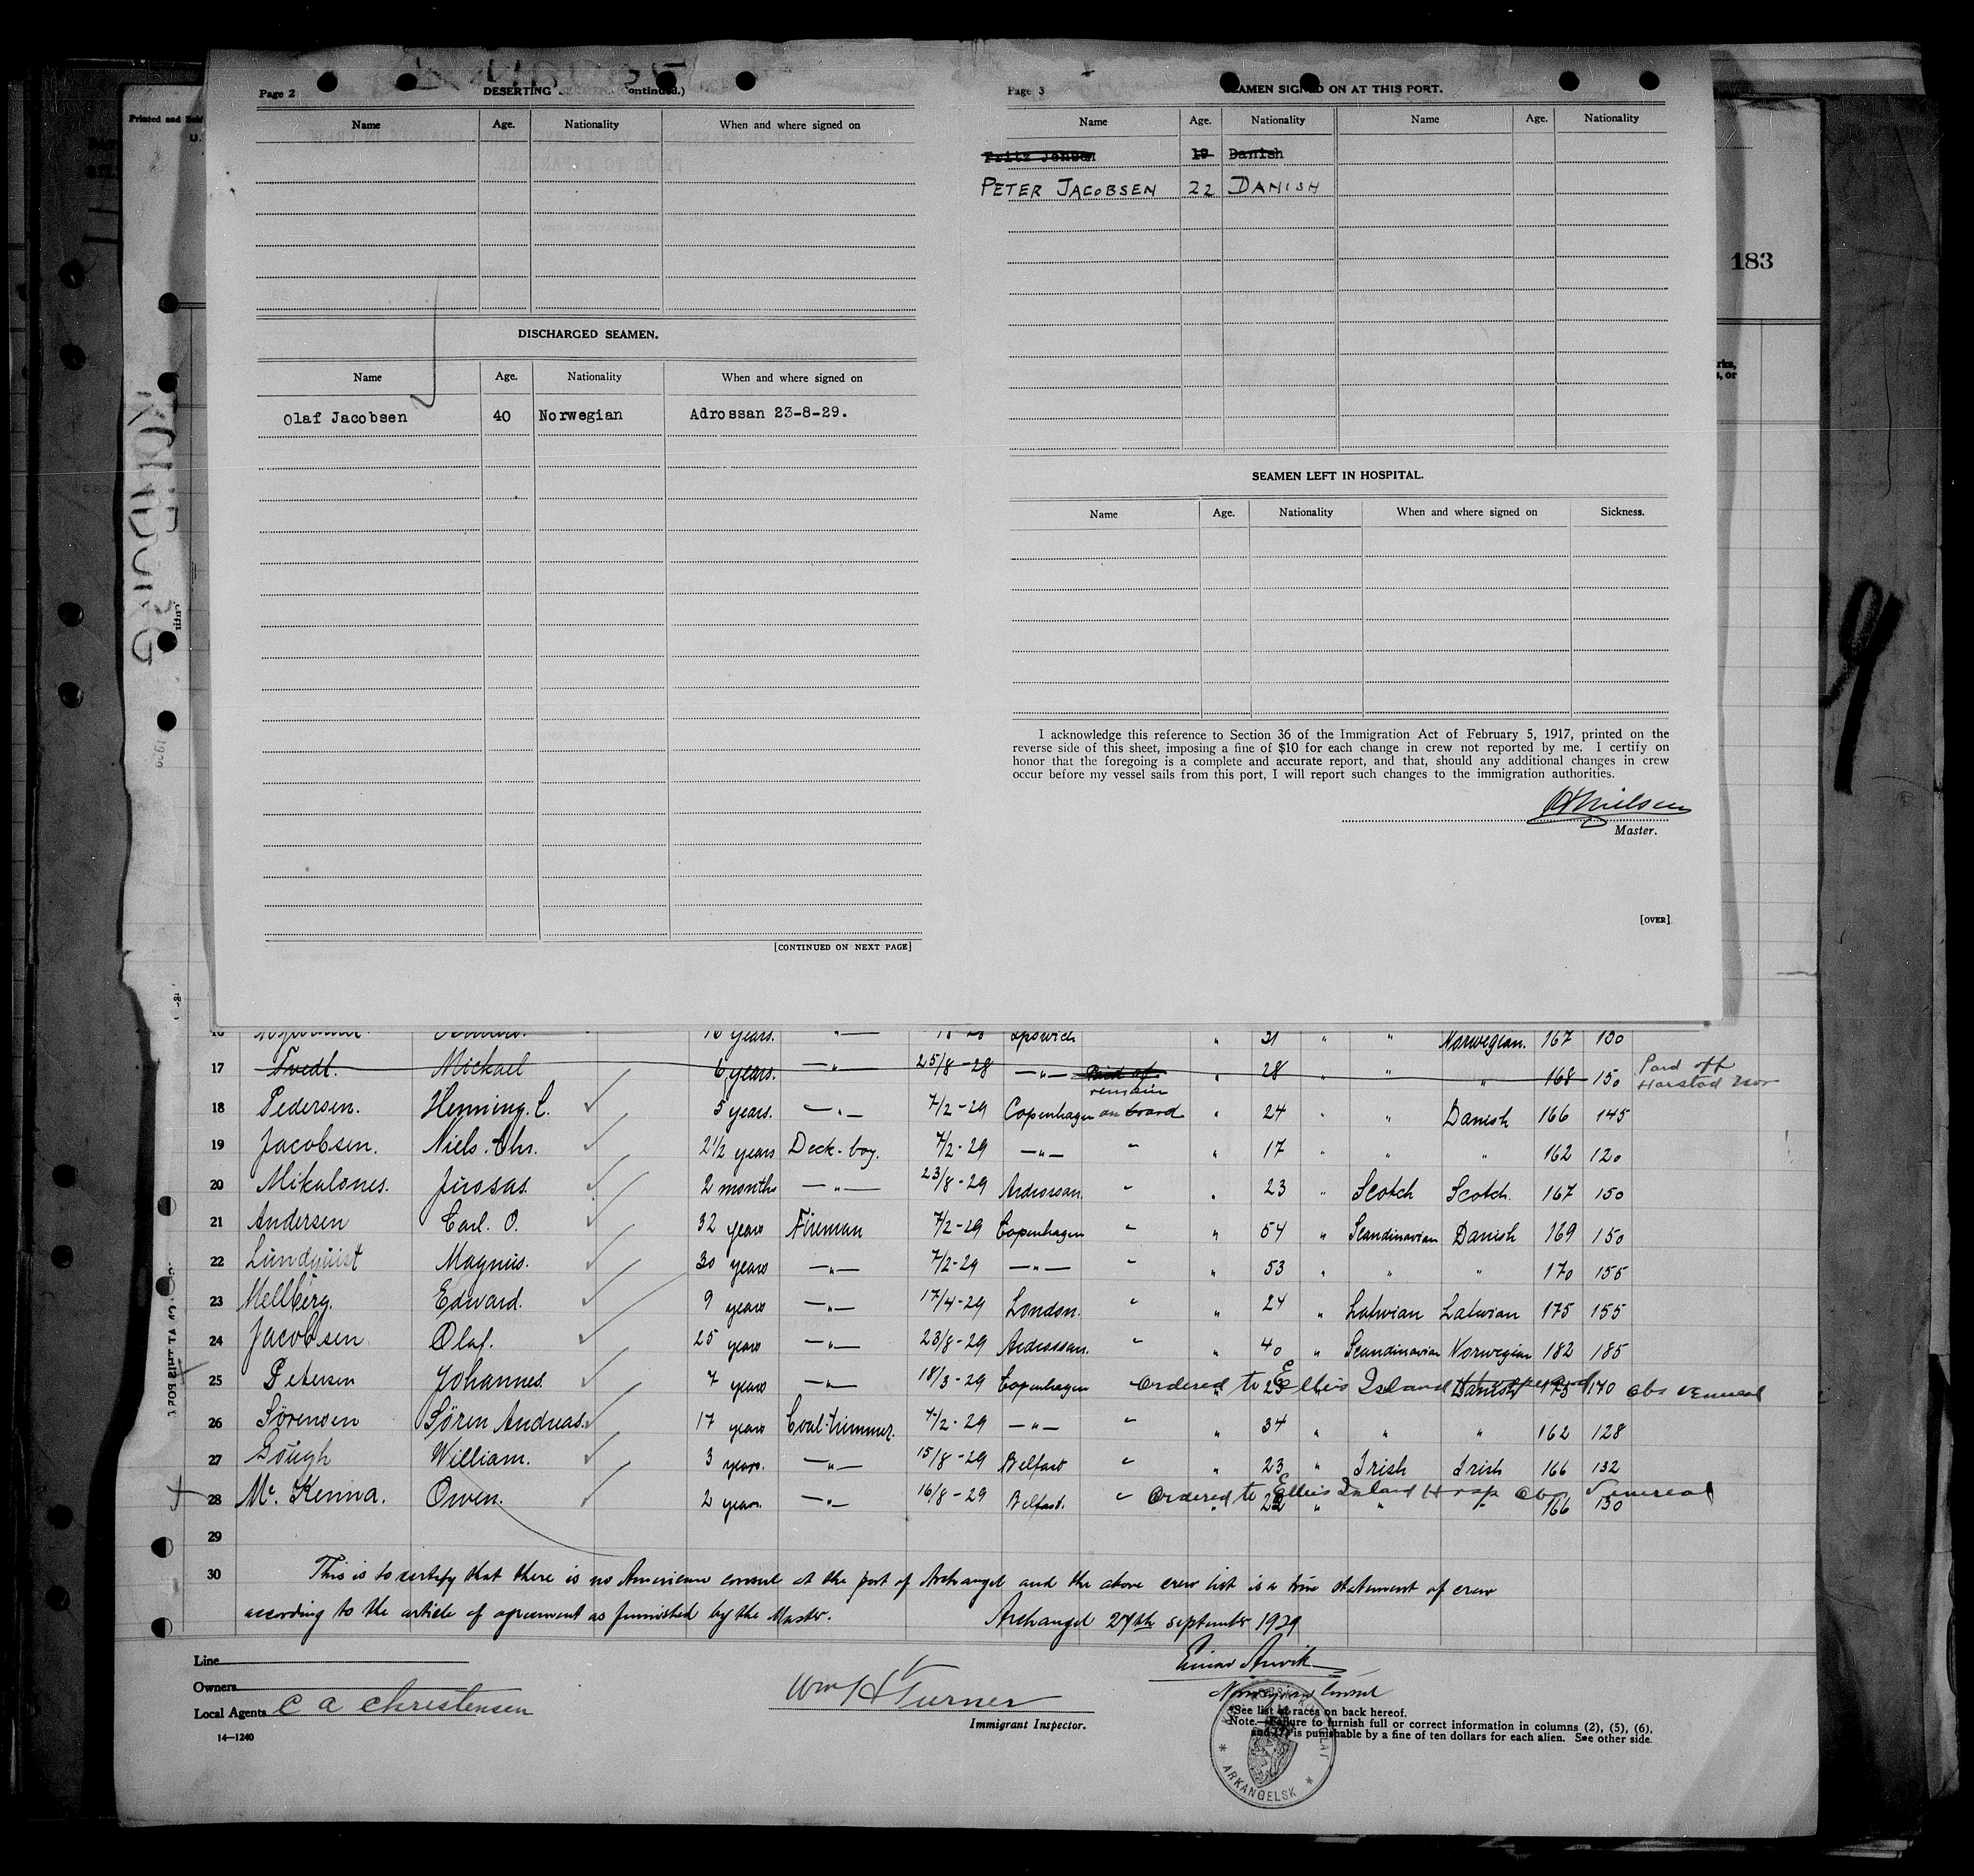 Page 2
DESERTING
Name Age. Nationality When and where signed on
DISCHARGED SEAMEN.
Name Age. Nationality When and where signed on
Olaf Jacobsen 40 Norwegian Adrossan 23-8-29.
[CONTINUED ON NEXT PAGE]
Page 3
SEAMEN SIGNED ON AT THIS PORT.
Name Age. Nationality Name Age. Nationality
Fritz Jensen 19 Danish
PETER JACOBSEN 22 DANISH
SEAMEN LEFT IN HOSPITAL.
Name Age. Nationality When and where signed on Sickness.
I acknowledge this reference to Section 36 of the Immigration Act of February 5, 1917, printed on the
reverse side of this sheet, imposing a fine of $10 for each change in crew not reported by me. I certify on
honor that the foregoing is a complete and accurate report, and that, should any additional changes in crew
occur before my vessel sails from this port, I will report such changes to the immigration authorities.
Nielsen
Master.
[OVER]
Printed and
183
years. Ipswich " 31 " " Norwegian. 167
17 Tvedt. Mickael 6 years. —"— 25/8-28 —"— " 28 " " " 168 150 Paid off
Harstad Nor
remain
18 Pedersen. Henning. C. 5 years. —"— 7/2-29 Copenhagen on board " 24 " " Danish 166 145
19 Jacobsen. Niels. Chr. 2½ years Deck-boy. 7/2-29 —"— " " 17 " " " 162 120
20 Mikalones. Juosas. 2 months —"— 23/8-29 Ardrossan. " " 23 " Scotch Scotch. 167 150
21 Andersen Carl. O. 32 years Fireman 7/2-29 Copenhagen " " 54 " Scandinavian Danish 169 150
22 Lundquist Magnus. 30 years —"— 7/2-29 —"— " " 53 " " " 170 155
23 Mellberg. Edward. 9 years —"— 17/4-29 London. " " 24 " Latvian Latvian 175 155
24 Jacobsen Olaf. 25 years —"— 23/8-29 Ardrossan. " " 40 " Scandinavian Norwegian 182 185
25 Petersen Johannes. 7 years —"— 18/3-29 Copenhagen " Ordered to Ellis Island Danish 175 140 obs venereal
26 Sørensen Søren Andreas. 17 years Coal-trimmer. 7/2-29 —"— " " 34 " " " 162 128
27 Gough William. 3 years. —"— 15/8-29 Belfast " " 23 " Irish Irish 166 132
28 Mc. Kenna. Owen. 2 years. —"— 16/8-29 Belfast. " Ordered to Ellis Island Hosp obs venereal 22 " " " 166 130
29
30 This is to certify that there is no American consul at the port of Archangel and the above crew list is a true statement of crew
according to the article of agreement as furnished by the Master. Archangel 27th september 1929
Line
Owners
Local Agents C A Christensen
14—1240
Wm H Turner
Immigrant Inspector.
Norwegian Consul
*See list of races on back hereof.
Note.—Failure to furnish full or correct information in columns (2), (5), (6),
and (7) is punishable by a fine of ten dollars for each alien. See other side.
ARKANGELSK